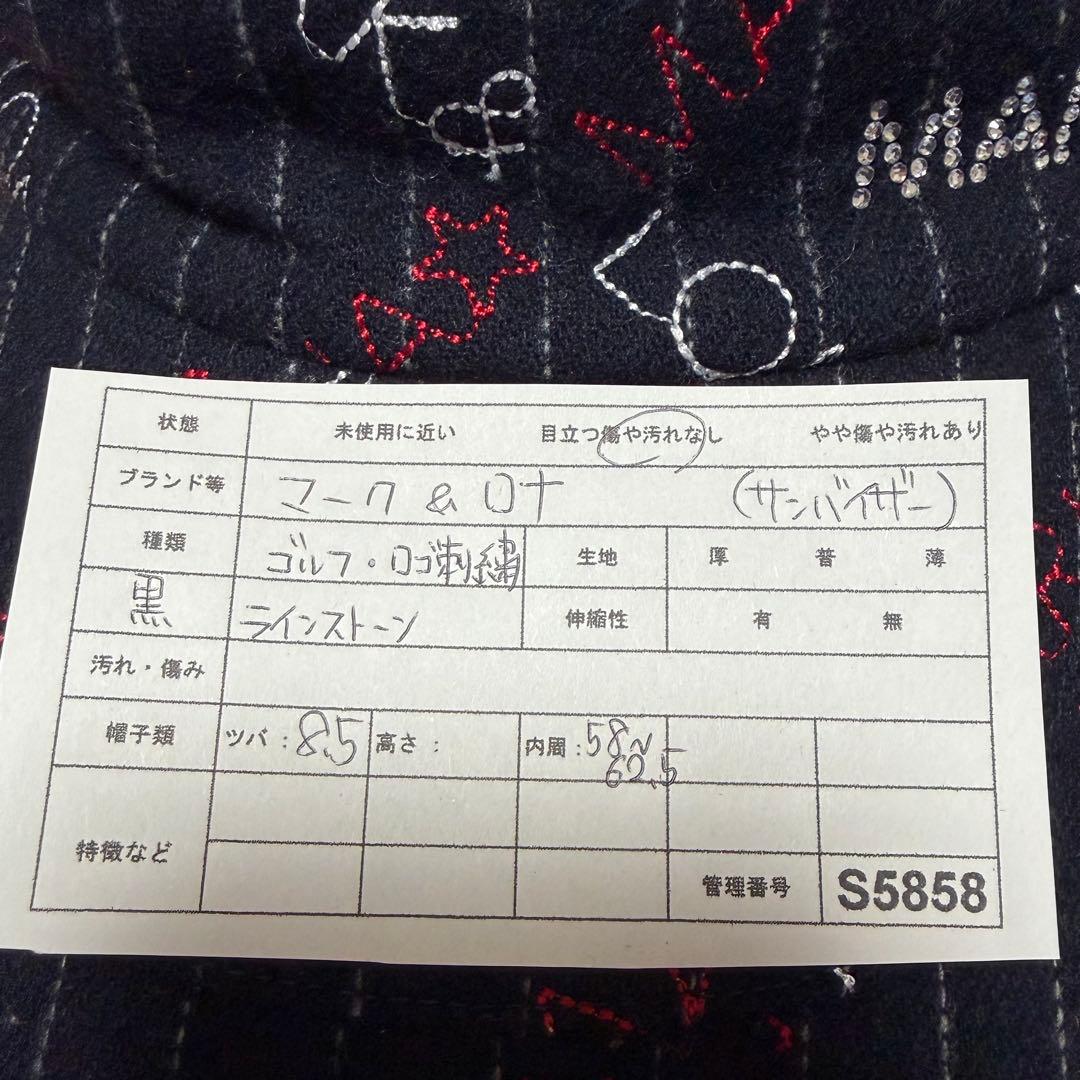 &
MA
状態 未使用に近い 目立つ傷や汚れなし やや傷や汚れあり
ブランド等 マーク & ロナ (サンバイザー)
種類 ゴルフ・ロゴ刺繍 生地 厚 普 薄
黒 ラインストーン 伸縮性 有 無
汚れ・傷み
帽子類 ツバ：8.5 高さ： 内周：58~62.5
特徴など
管理番号 S5858